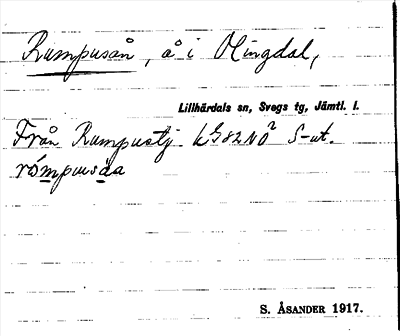 Rumpusån, å i Olingdal,
Lillhärdals sn, Svegs tg, Jämtl. l.
Från Rumpustj. S-ut.
rómpusåa
S. ÅSANDER 1917.